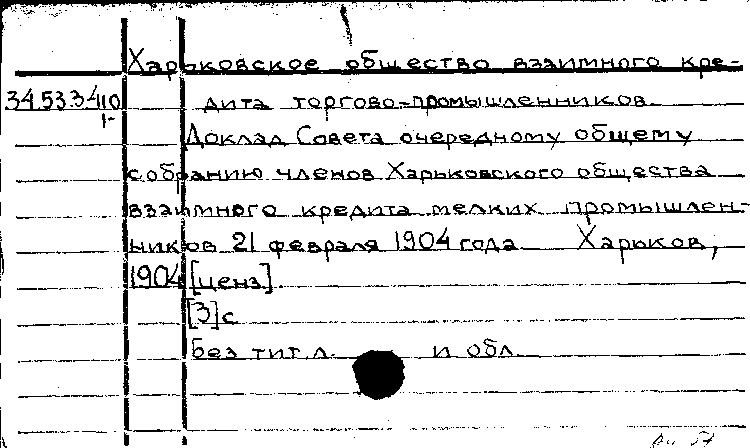 Харьковское общество взаимного кре-
34.53.3410 дита торгово-промышленников.
1-
Доклад Совета очередному общему
собранию членов Харьковского общества
взаимного кредита мелких промышлен-
ников 21 февраля 1904 года Харьков,
1904 [ценз].
[3]с
Без тит.л. и обл.